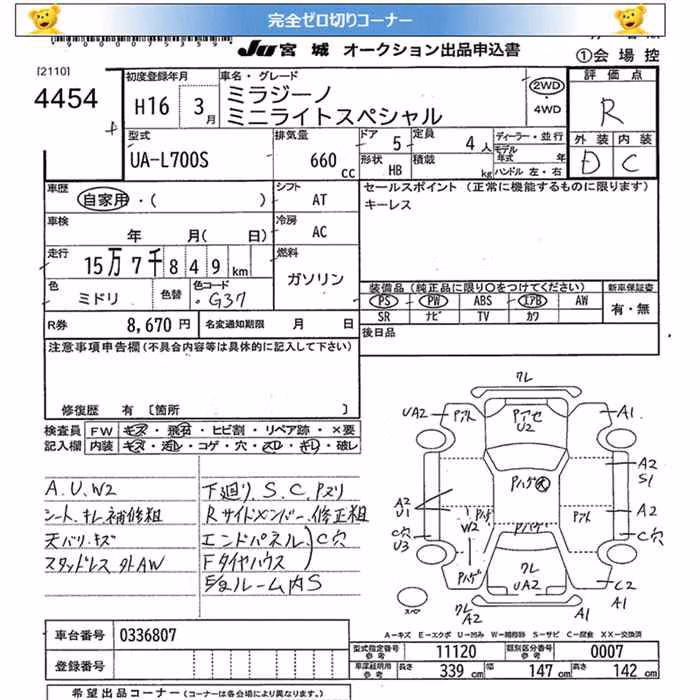 完全ゼロ切りコーナー
JU 宮城 オークション出品申込書
①会場控
[2110]
4454
初度登録年月
H16 3月
車名・グレード
ミラジーノ
ミニライトスペシャル
2WD
・
4WD
評価点
R
外装 内装
D C
型式
UA-L700S
排気量
660 cc
ドア 5
定員 4人
形状 HB
積載 kg
ディーラー・並行
モデル年式 年
ハンドル 左・右
車歴
自家用・( )
シフト AT
セールスポイント (正常に機能するものに限ります)
キーレス
車検
年 月( 日)
冷房 AC
走行
15万7千849km
燃料
ガソリン
色
ミドリ
色替
色コード
G37
装備品(純正品に限り○をつけてください)
PS PW ABS エアB AW
SR ナビ TV カワ
新車保証書
有・無
R券 8,670円
名変通知期限 月 日
後日品
注意事項申告欄(不具合内容等は具体的に記入して下さい)
修復歴 有 [箇所 ]
検査員 FW キズ・飛石・ヒビ割・リペア跡・×要
記入欄 内装 キズ・汚レ・コゲ・穴・スレ・キレ・破レ
A.U.W2
シート.キレ.補修粗
天バリ.キズ
スタッドレス 外AW
下廻り.S.C.Pズリ
Rサイドメンバー.修正粗
エンドパネル.
Fタイヤハウス
C穴
ルーム内S
ワレ
UA2
Pアト
Pアセ
U2
A1
A2
S1
Pハゲ大
A2
U1
Pハゲ
W2
Pアト
A2
C穴
U3
Pハゲ
C穴
Pハゲ
UA2
C2
A1
スペア
ワレ
A2
A1
A-キズ E-エクボ U-凹み W-補修跡 S-サビ C-腐食 XX-交換済
車台番号 0336807
登録番号
型式指定番号 参考 11120
類別区分番号 参考 0007
車庫証明用 参考 長さ 339 cm 幅 147 cm 高さ 142 cm
希望出品コーナー(コーナーは各会場により異なります。)